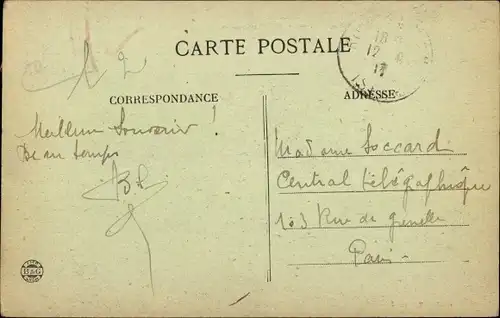 CARTE POSTALE
CORRESPONDANCE
ADRESSE
Meilleur Souvenir !
Beau temps
BL
Madame Soccard
Central télégraphique
103 Rue de Grenelle
Paris
B&G